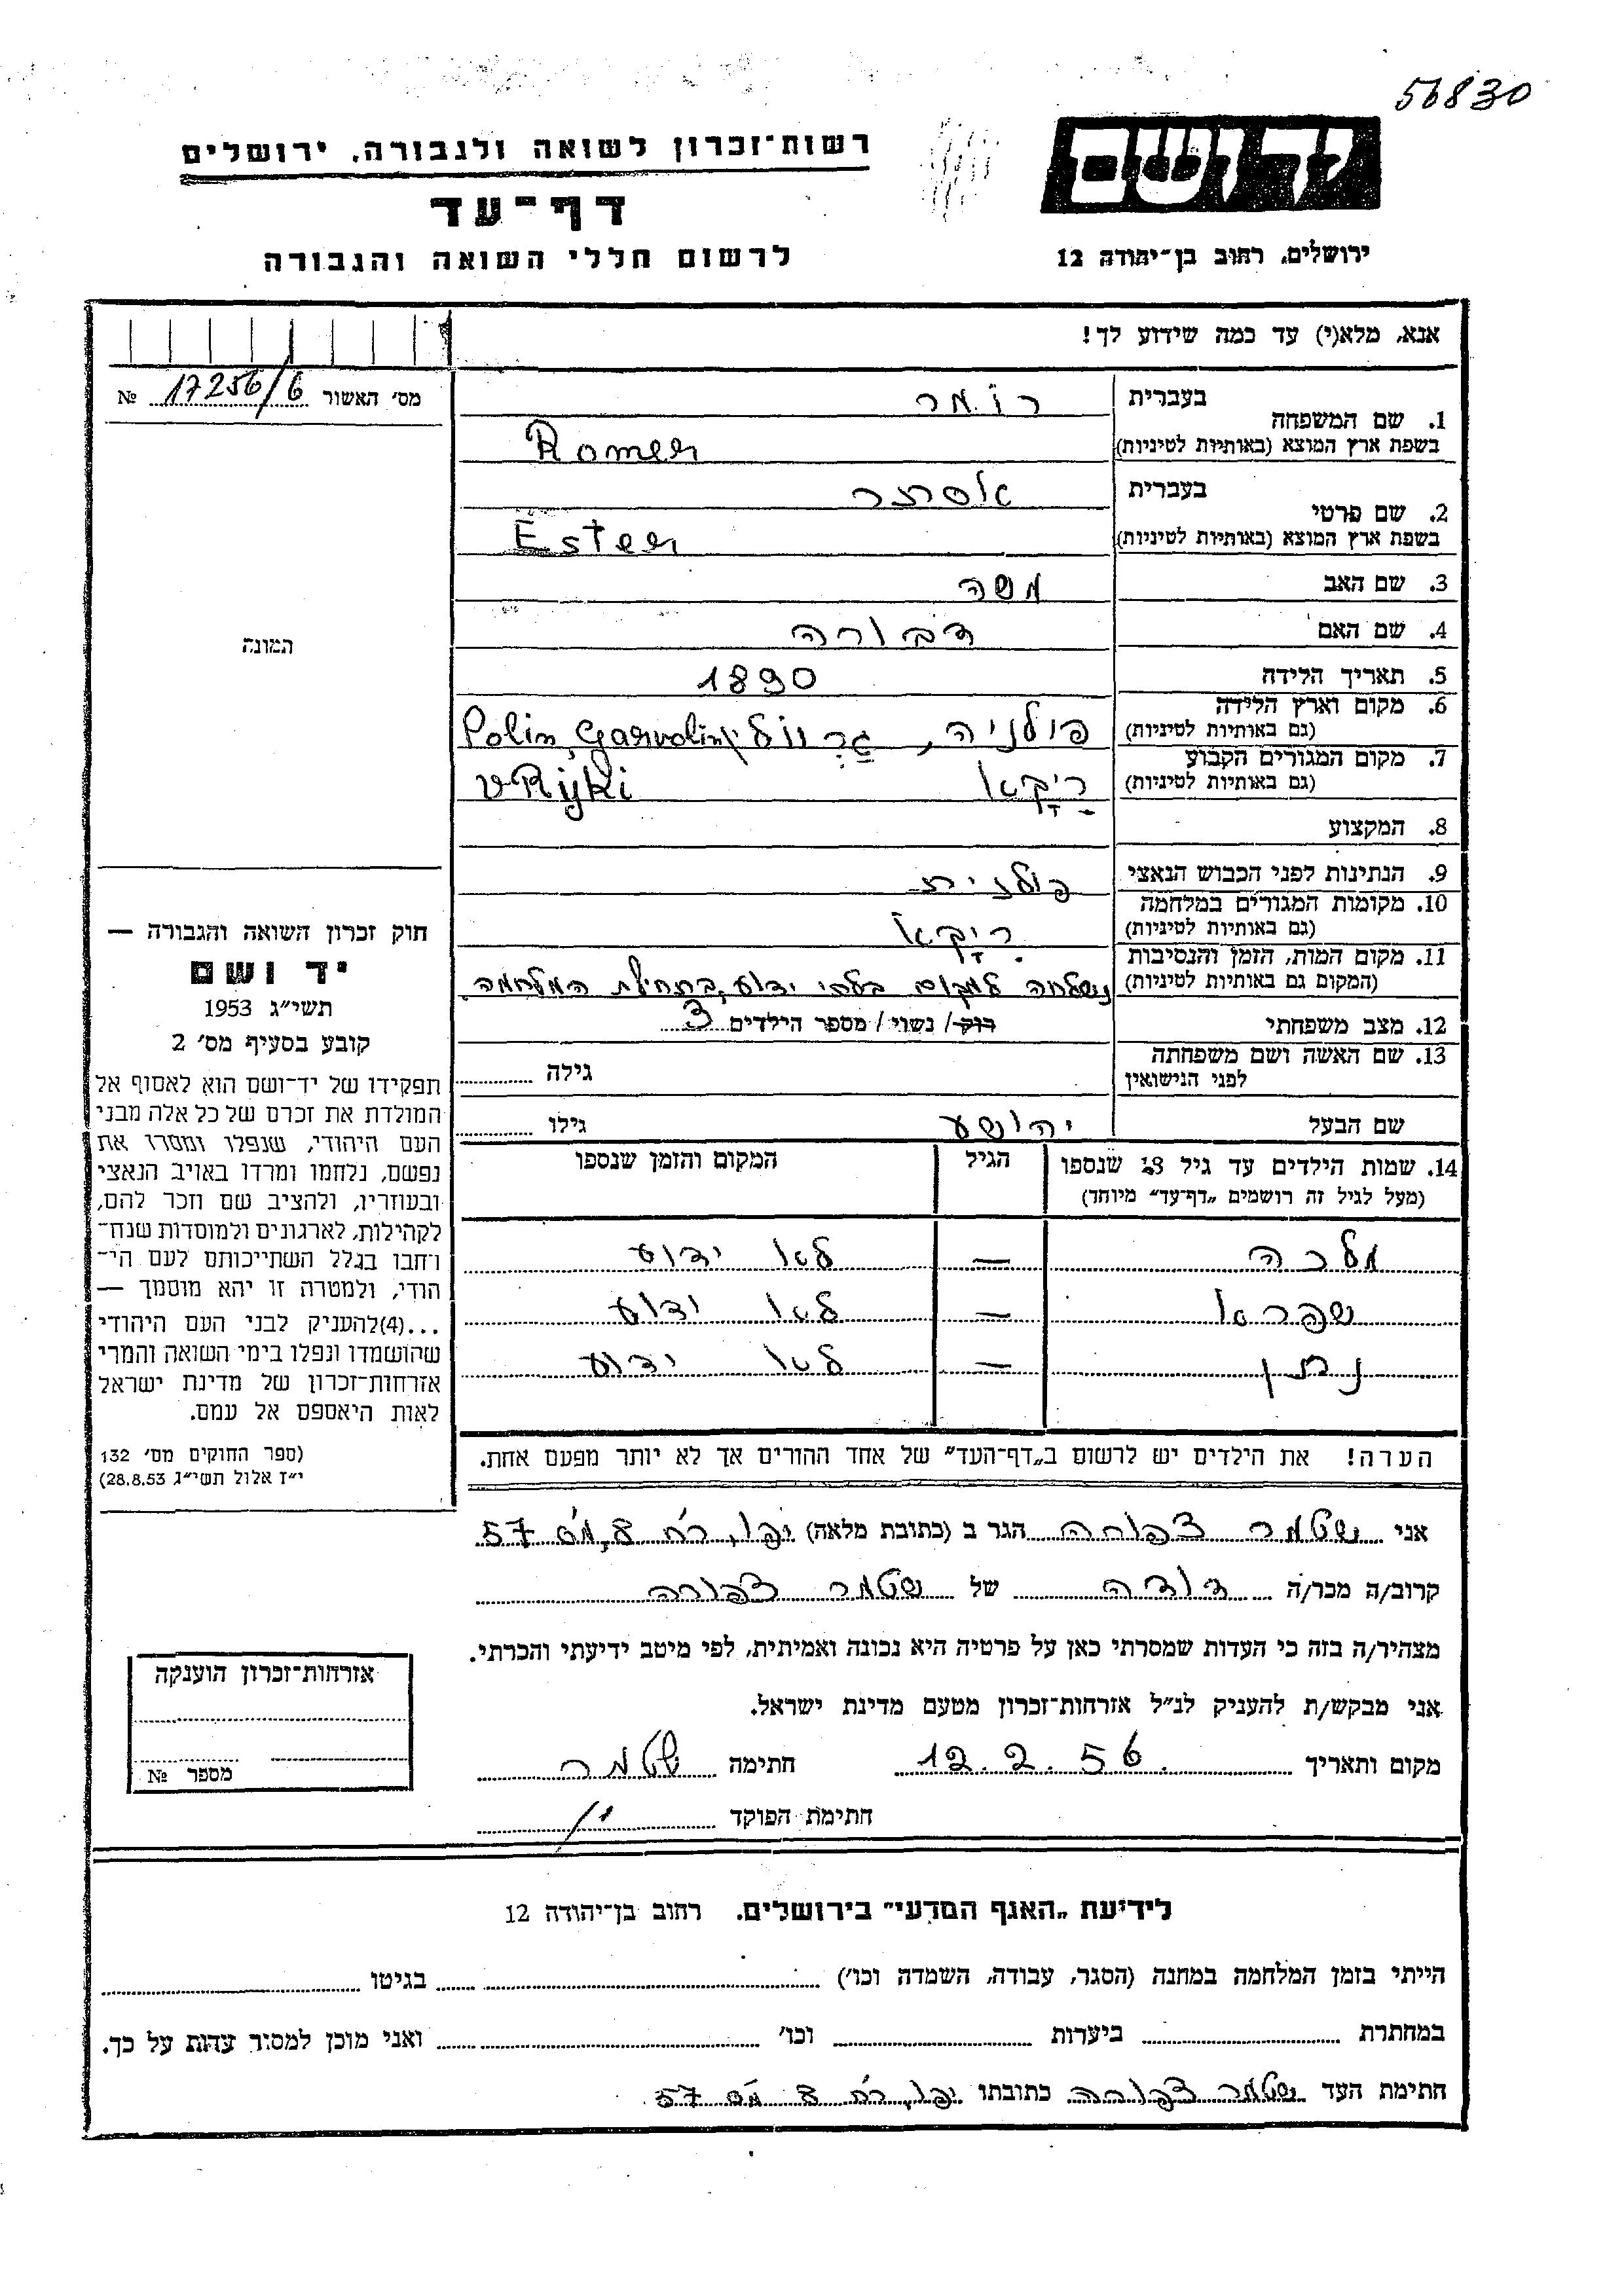 56830
יד ושם
רשות־זכרון לשואה ולגבורה, ירושלים
דף־עד
לרשום חללי השואה והגבורה
ירושלים, רחוב בן־יהודה 12
אנא, מלא(י) עד כמה שידוע לך!
מס׳ האשור 17256/6 №
1. שם המשפחה
בעברית רומר
בשפת ארץ המוצא (באותיות לטיניות) Romer
2. שם פרטי
בעברית אסתר
בשפת ארץ המוצא (באותיות לטיניות) Ester
3. שם האב משה
4. שם האם דבורה
5. תאריך הלידה 1890
6. מקום וארץ הלידה פולניה, גרוולין Polin, Garvolin
(גם באותיות לטיניות)
7. מקום המגורים הקבוע
(גם באותיות לטיניות) Rijki
8. המקצוע
9. הנתינות לפני הכבוש הנאצי פולנית
10. מקומות המגורים במלחמה
(גם באותיות לטיניות)
11. מקום המות, הזמן והנסיבות
(המקום גם באותיות לטיניות) נשלחה למקום בלתי ידוע, בתחילת המלחמה.
12. מצב משפחתי רוק/ נשוי/ מספר הילדים 3
13. שם האשה ושם משפחתה
לפני הנישואין גילה
שם הבעל יהושע גילו
14. שמות הילדים עד גיל 18 שנספו הגיל המקום והזמן שנספו
(מעל לגיל זה רושמים „דף־עד״ מיוחד)
מלכה — לא ידוע
שפרא — לא ידוע
נתן — לא ידוע
הערה! את הילדים יש לרשום ב„דף־העד״ של אחד ההורים אך לא יותר מפעם אחת.
התמונה
חוק זכרון השואה והגבורה —
יד ושם
תשי״ג 1953
קובע בסעיף מס׳ 2
תפקידו של יד־ושם הוא לאסוף אל
המולדת את זכרם של כל אלה מבני
העם היהודי, שנפלו ומסרו את
נפשם, נלחמו ומרדו באויב הנאצי
ובעוזריו, ולהציב שם וזכר להם,
לקהילות, לארגונים ולמוסדות שנח־
רחבו בגלל השתייכותם לעם הי־
הודי, ולמטרה זו יהא מוסמך —
...(4)להעניק לבני העם היהודי
שהושמדו ונפלו בימי השואה והמרי
אזרחות־זכרון של מדינת ישראל
לאות היאספם אל עמם.
(ספר החוקים מס׳ 132
י״ז אלול תשי״ג 28.8.53)
אני שטמר צפורה הגר ב (כתובת מלאה) יפו, רח 8, מס 57
קרוב/ה מכר/ה דודה של שטמר צפורה
מצהיר/ה בזה כי העדות שמסרתי כאן על פרטיה היא נכונה ואמיתית, לפי מיטב ידיעתי והכרתי.
אני מבקש/ת להעניק לנ״ל אזרחות־זכרון מטעם מדינת ישראל.
מקום ותאריך 12.2.56. חתימה שטמר
חתימת הפוקד
אזרחות־זכרון הוענקה
מספר №
לידיעת „האגף המדעי״ בירושלים. רחוב בן־יהודה 12
הייתי בזמן המלחמה במחנה (הסגר, עבודה, השמדה וכו׳) בגיטו
במחתרת ביערות וכו׳ ואני מוכן למסור עדות על כך.
חתימת העד שטמר צפורה כתובתו יפו, רח 8 מס 57